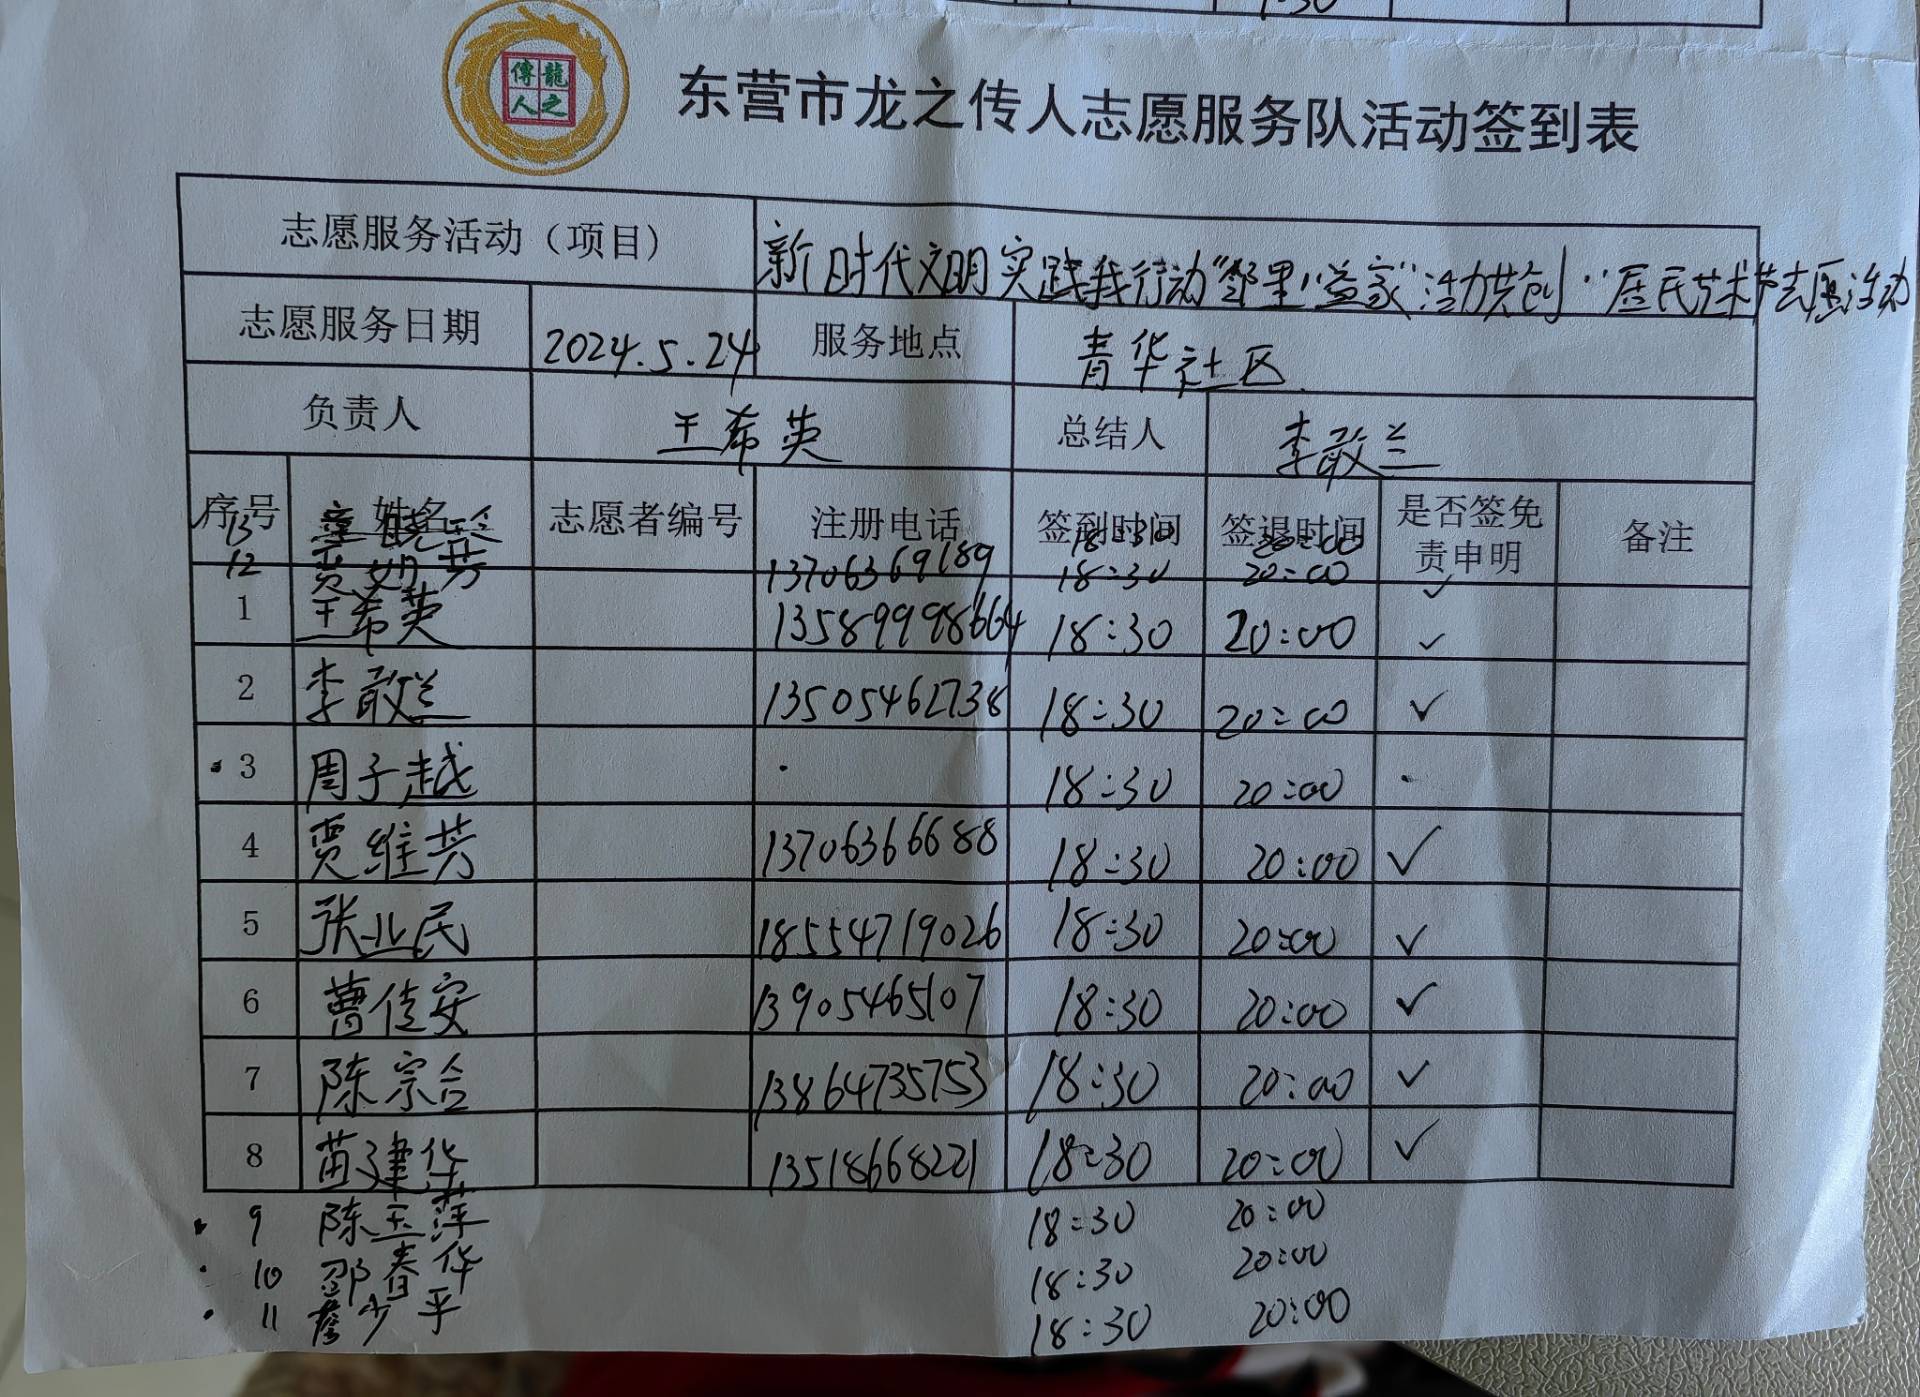 1:30
傳龍
人之
东营市龙之传人志愿服务队活动签到表
志愿服务活动（项目） 新时代文明实践我行动“邻里益家”活力共创“居民艺术节志愿活动
志愿服务日期 2024.5.24 服务地点 青华社区
负责人 王希英 总结人 李敢兰
序号 姓名 志愿者编号 注册电话 签到时间 签退时间 是否签免责申明 备注
13 18:30 20:00
12 贾如芳 13706369189 18:30 20:00 ✓
1 王希英 13589998664 18:30 20:00 ✓
2 李敢兰 13505461738 18:30 20:00 ✓
3 周子越 18:30 20:00
4 贾维芳 13706366688 18:30 20:00 ✓
5 张业民 18554719026 18:30 20:00 ✓
6 曹佳安 13905465107 18:30 20:00 ✓
7 陈宗合 13864735753 18:30 20:00 ✓
8 苗建华 13518668221 18:30 20:00 ✓
9 陈玉萍 18:30 20:00
10 邵春华 18:30 20:00
11 詹少平 18:30 20:00